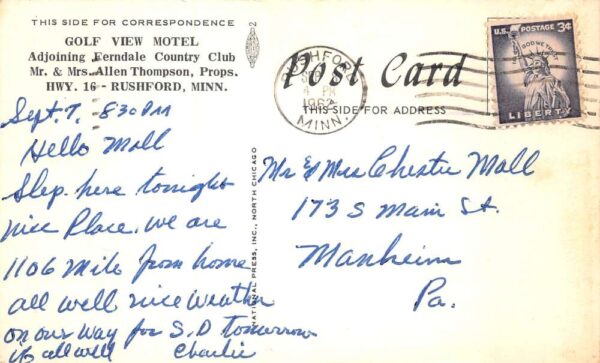 THIS SIDE FOR CORRESPONDENCE
GOLF VIEW MOTEL
Adjoining Ferndale Country Club
Mr. & Mrs. Allen Thompson, Props.
HWY. 16 - RUSHFORD, MINN.
Sept. 7, 8:30 PM
Hello Mall
Slep. here tonight
nice Place, we are
1106 Mile from home
all well nice weather
on our way for S.D tomorrow
all well Charlie
2
NATIONAL PRESS, INC., NORTH CHICAGO
Post Card
THIS SIDE FOR ADDRESS
PM
MINN.
U.S. POSTAGE 3¢
IN GOD WE TRUST
LIBERTY
Mr & Mrs Chester Mall
173 S Main St.
Manheim
Pa.